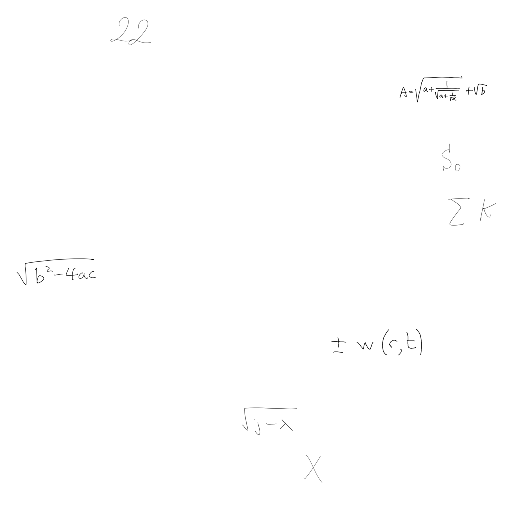 22
A=√(a+1/√(a+1/√a))+√b
S₀
∑ K
√(b²-4ac)
± w(r,t)
√(j-x)
X